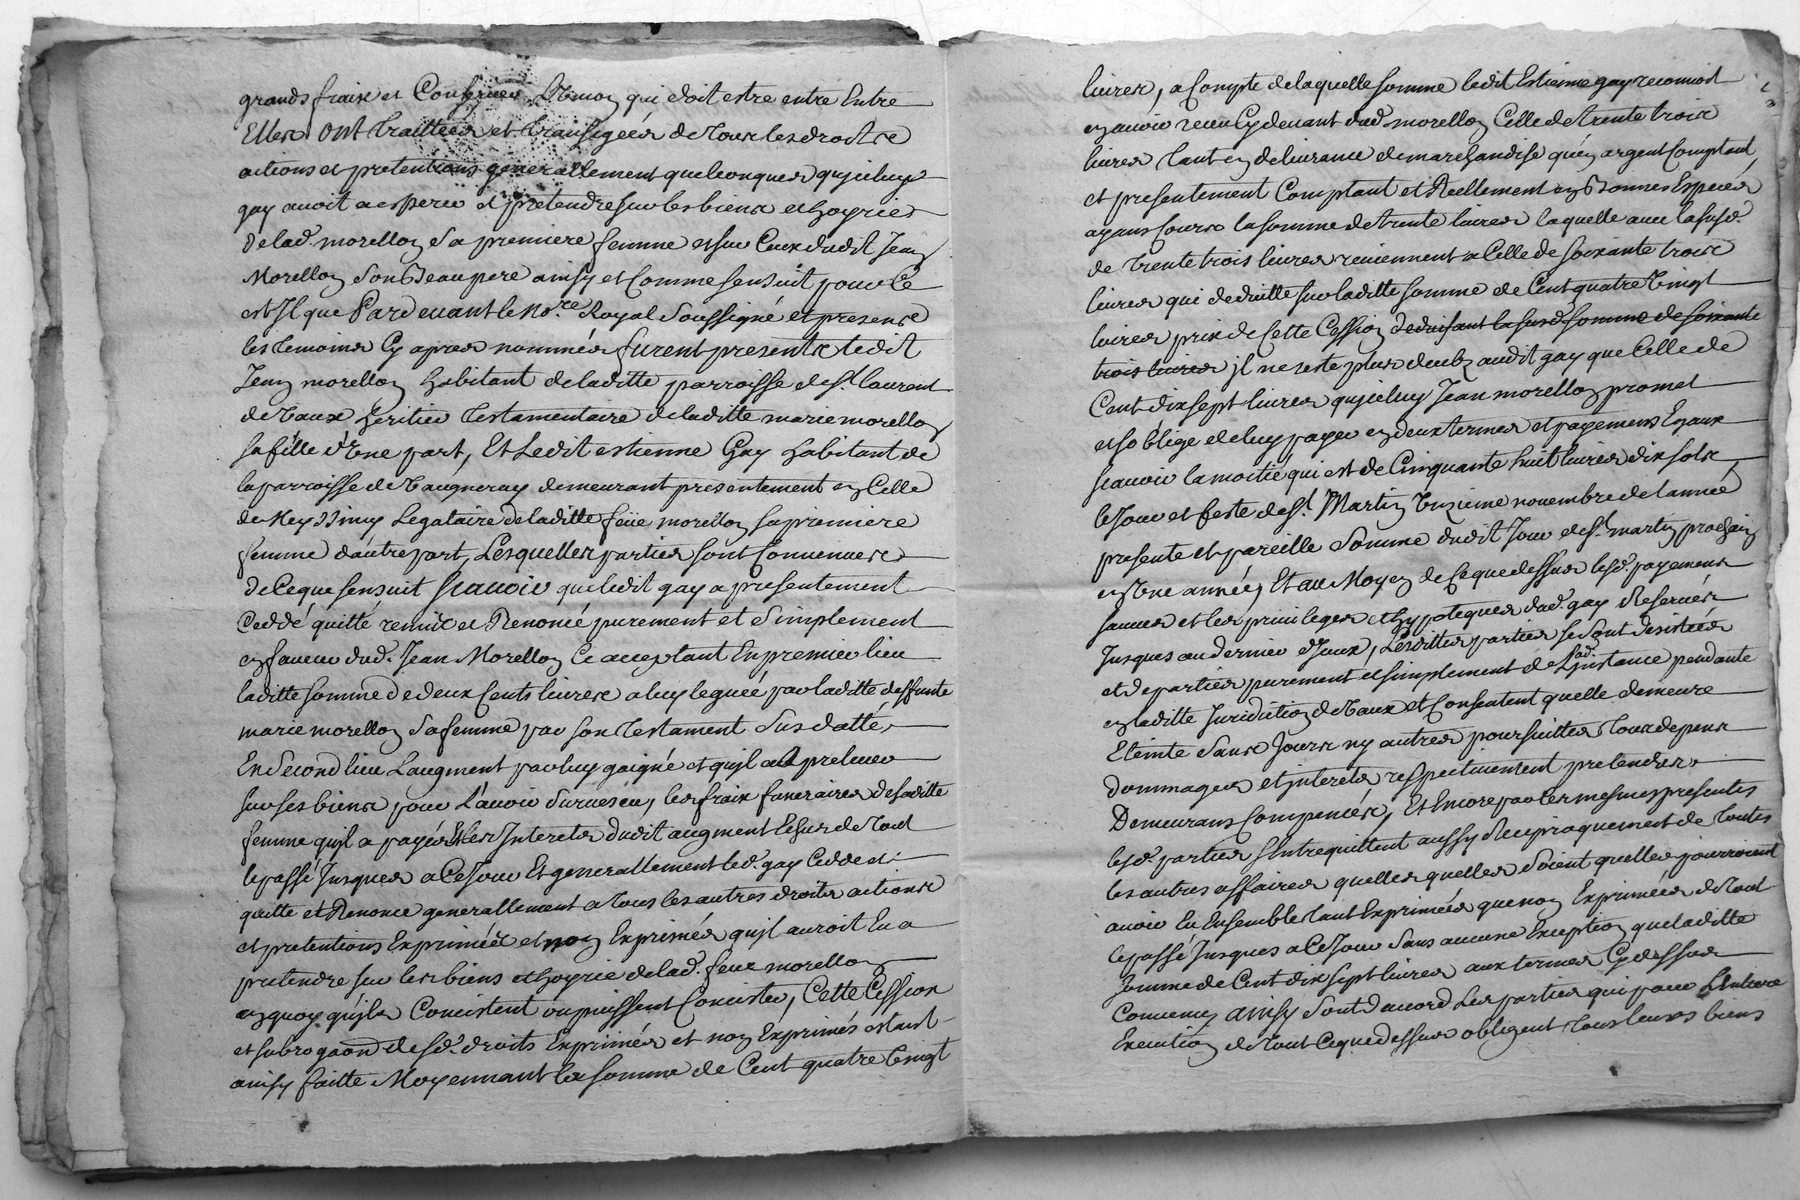 grands fraix et Conserver L'union qui doit estre entre Entre
Elles ONt traittées et transigées de tous les droits
actions et pretentions generallement quelconques qu'jceluy
gay avoit a esperer et pretendre sur les biens et hoyries
de lad. morellon Sa premiere femme et sur Ceux dudit Jean
Morellon Son Beaupere ainsy et Comme sensuit pour Ce
est Il que Pardevant le No.re Royal Soussigné et presence
les temoins Cy apres nommés furent presents ledit
Jean morellon habitant de laditte parroisse de St. laurent
de Vaux heritier testamentaire de laditte marie morellon
sa fille d'Une part, Et Ledit estienne Gay habitant de
la parroisse de Vaugneray demeurant presentement en Celle
de Meyssimy Legataire de laditte feüe morellon sa premiere
femme d'autre part, Lesquelles parties sont Convenues
de Ceque sensuit Scauoir que ledit gay a presentement
Ceddé quitté remit et Renoncé purement et Simplement
en faveur dud. Jean Morellon Ce acceptant En premier lieu
laditte somme de deux Cents livres a luy leguée par laditte deffunte
marie morellon Sa femme par son testament Susdatté,
En Second lieu Laugment par luy gaigné et qu'jl a a prelever
sur ses biens pour L'avoir Survescu, les fraix funeraires de saditte
femme qu'jl a payés Et les Interets dudit augment Echus de tout
le passé Jusques a Ce Jour Et generallement led. gay Cedde et
quitte et Renonce generallement a tous les autres droits actions
et pretentions Exprimées et non Exprimés qu'jl auroit Eu a
pretendre sur les biens et hoyrie de lad. feue morellon
en quoy qu'jls Concistent ou puissent Concister, Cette Cession
et subrogaon de sd. droits Exprimés et non Exprimés estant
ainsy faitte Moyennant la somme de Cent quatre Vingt
livres, a Compte de laquelle somme ledit Estienne gay reconnoit
en avoir receu Cy devant dud. morellon Celle de trente trois
livres tant en delivrance de marchandise qu'en argent Comptant,
et presentement Comptant et Reellement en Bonnes Especes
ayans Cours la somme de trente livres laquelle avec la susd.
de trente trois livres reviennent a Celle de soixante trois
livres qui deduitte sur laditte somme de Cent quatre Vingt
livres prix de Cette Cession deduisant la susd. somme de soixante
trois livres jl ne reste plus deub audit gay que Celle de
Cent dix sept livres qu'jceluy Jean morellon promet
et so'blige de luy payer en deux termes et payemens Egaux
scauoir la moitié qui est de Cinquante huit livres dix sols
le Jour et feste de St. Martin Unzieme novembre de l'année
presente et pareille Somme dudit Jour de St. martin prochain
en Une année, Et au Moyen de Ceque dessus lesd. payemens
sauves et les privileges et hypoteques dud. gay Reservés
Jusques au dernier d'Jceux, Lesdittes parties se Sont desistées
et departies purement et simplement de Lad. Jnstance pendante
en laditte Juridiction de Vaux et Consentent quelle demeure
Eteinte Sans Jours ny autres poursuittes tous depens
dommages et jnterets respectivement pretendus
Demeurans Compensés, Et Encore par Ces mesmes presentes
lesd. parties s'Entrequittent aussy Reciproquement de toutes
les autres affaires quelles quelles Soient quelles pourroient
avoir Eu Ensemble tant Exprimées que non Exprimées de tout
le passé Jusques a Ce Jour Sans aucune Exception que laditte
somme de Cent dix sept livres aux termes Cy dessus
Convenus ainsy sont d'accord Les parties qui pour L'entiere
Execution de tout Ceque dessus obligent tous leurs biens